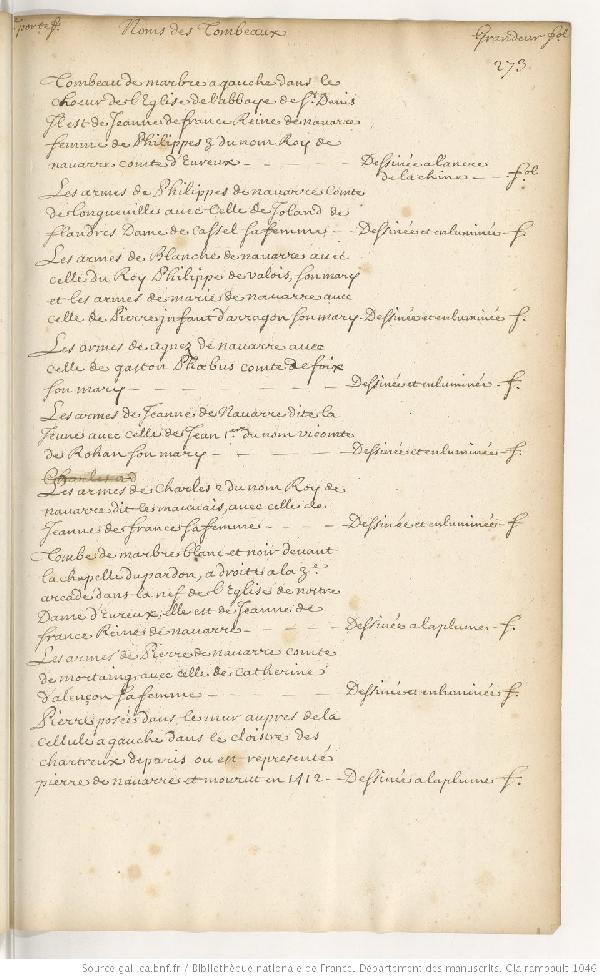 porte f. Noms des Tombeaux Grandeur fol
273.
Tombeau de marbre a gauche dans le
choeur de l'Eglise de l'abbaye de St. Denis
Il est de Jeanne de france Reine de navarre,
femme de Philippes 3 du nom Roy de
navarre comte d'Eureux - - - - Dessinée a l'ancre
de la chine - - fol.
Les armes de Philippes de navarre Comte
de Longueuille auec Celle de Joland de
flandres Dame de Cassel sa femme - - Dessinée et enluminée - f.
Les armes de Blanche de nauarre auec
celle du Roy Philippe de valois, son mary
et les armes de marie de nauarre auec
celle de Pierre jnfant d'arragon son mary - Dessinée et enluminée f.
Les armes de agnez de nauarre auec
celle de gaston Phœbus comte de foix
son mary - - - - - Dessinée et enluminée - f.
Les armes de Jeanne de Nauarre dite la
Jeune auec celle de Jean 1er. du nom vicomte
de Rohan son mary - - - - Dessinée et enluminée - f.
Charles ad
Les armes de Charles 2 du nom Roy de
nauarre dit le mauuais, auec celle de
Jeanne de france sa femme - - - - Dessinée et enluminée - f
Tombe de marbre blanc et noir deuant
la chapelle du pardon, a droite a la 3e.
arcade dans la nef de l'Eglise de nostre
Dame d'Eureux, elle est de Jeanne de
france Reine de nauarre - - - - Dessinée a la plume - f.
Les armes de Pierre de nauarre comte
de mortaing auec celle de Catherine
d'alençon sa femme - - - - Dessinée et enluminée f.
Pierre posée dans le mur aupres de la
cellule a gauche dans le cloistre des
chartreux de paris ou est representé
pierre de nauarre et mourut en 1412 - - Dessinée a la plume f.
Source gallica.bnf.fr / Bibliothèque nationale de France. Département des manuscrits. Clairambault 1046